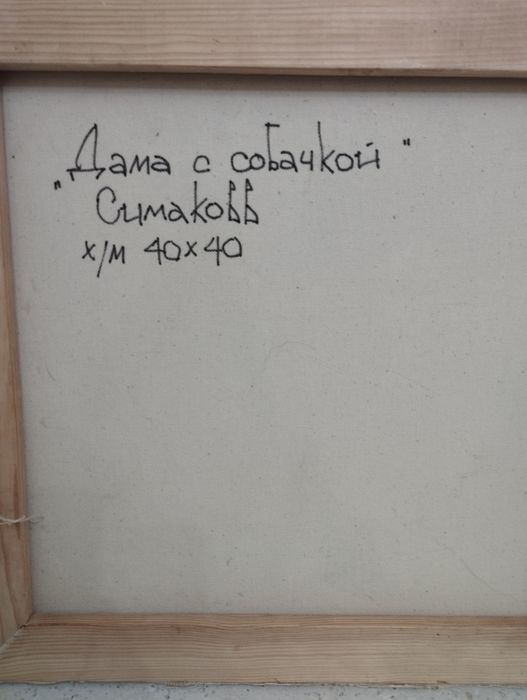 "Дама с собачкой"
Симаков В
х/м 40х40